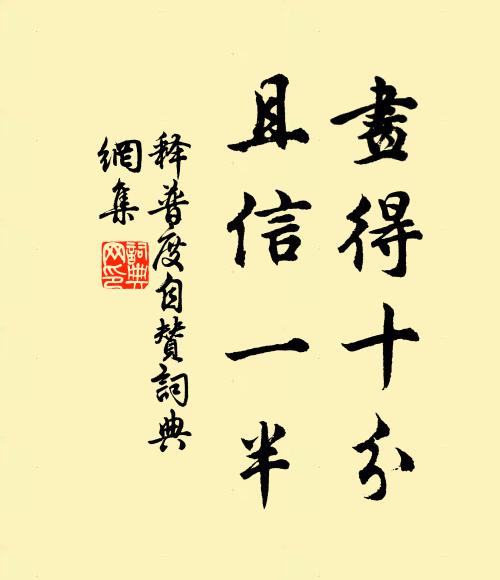 畫得十分
且信一半
释普度自赞詞典
網集
詞典网印